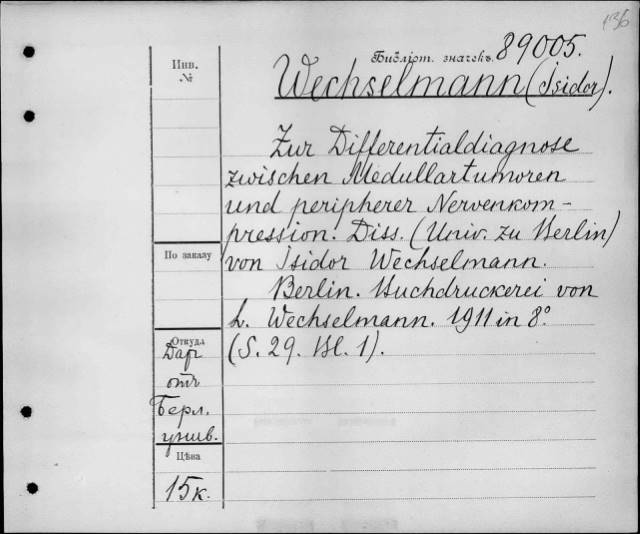 136
Библіот. значекъ. 89005.
Инв. №
Wechselmann (Isidor).
Zur Differentialdiagnose
zwischen Medullartumoren
und peripherer Nervenkom-
pression. Diss. (Univ. zu Berlin)
По заказу
von Isidor Wechselmann.
Berlin. Buchdruckerei von
L. Wechselmann. 1911 in 8°.
(S. 29. Bl. 1).
Откуда
Дар
отъ
Берл.
унив.
Цѣна
15 к.